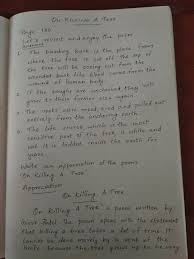 On Killing A Tree
Page 130
Let's revisit and enjoy the poem
Answers
1. The bleeding bark is the place from
where the tree is cut off. The sap of
the tree will be oozing out from the
wounded bark like blood comes from the
wound of a human body.
2. If the boughs are unchecked they will
grow to their former size again.
3. The roots are and pulled out
entirely from the anchoring earth.
4. The life source which is the most
sensitive part of the tree, is white and
wet. It is hidden inside the earth for
years.
Write an appreciation of the poem
'On Killing A Tree'.
Appreciation
On Killing A Tree
'On Killing A Tree' a poem written by
Gieve Patel. The poem opens with the statement
that killing a tree takes a lot of time. It
cannot be done merely by a jab of the
knife because the tree grows up